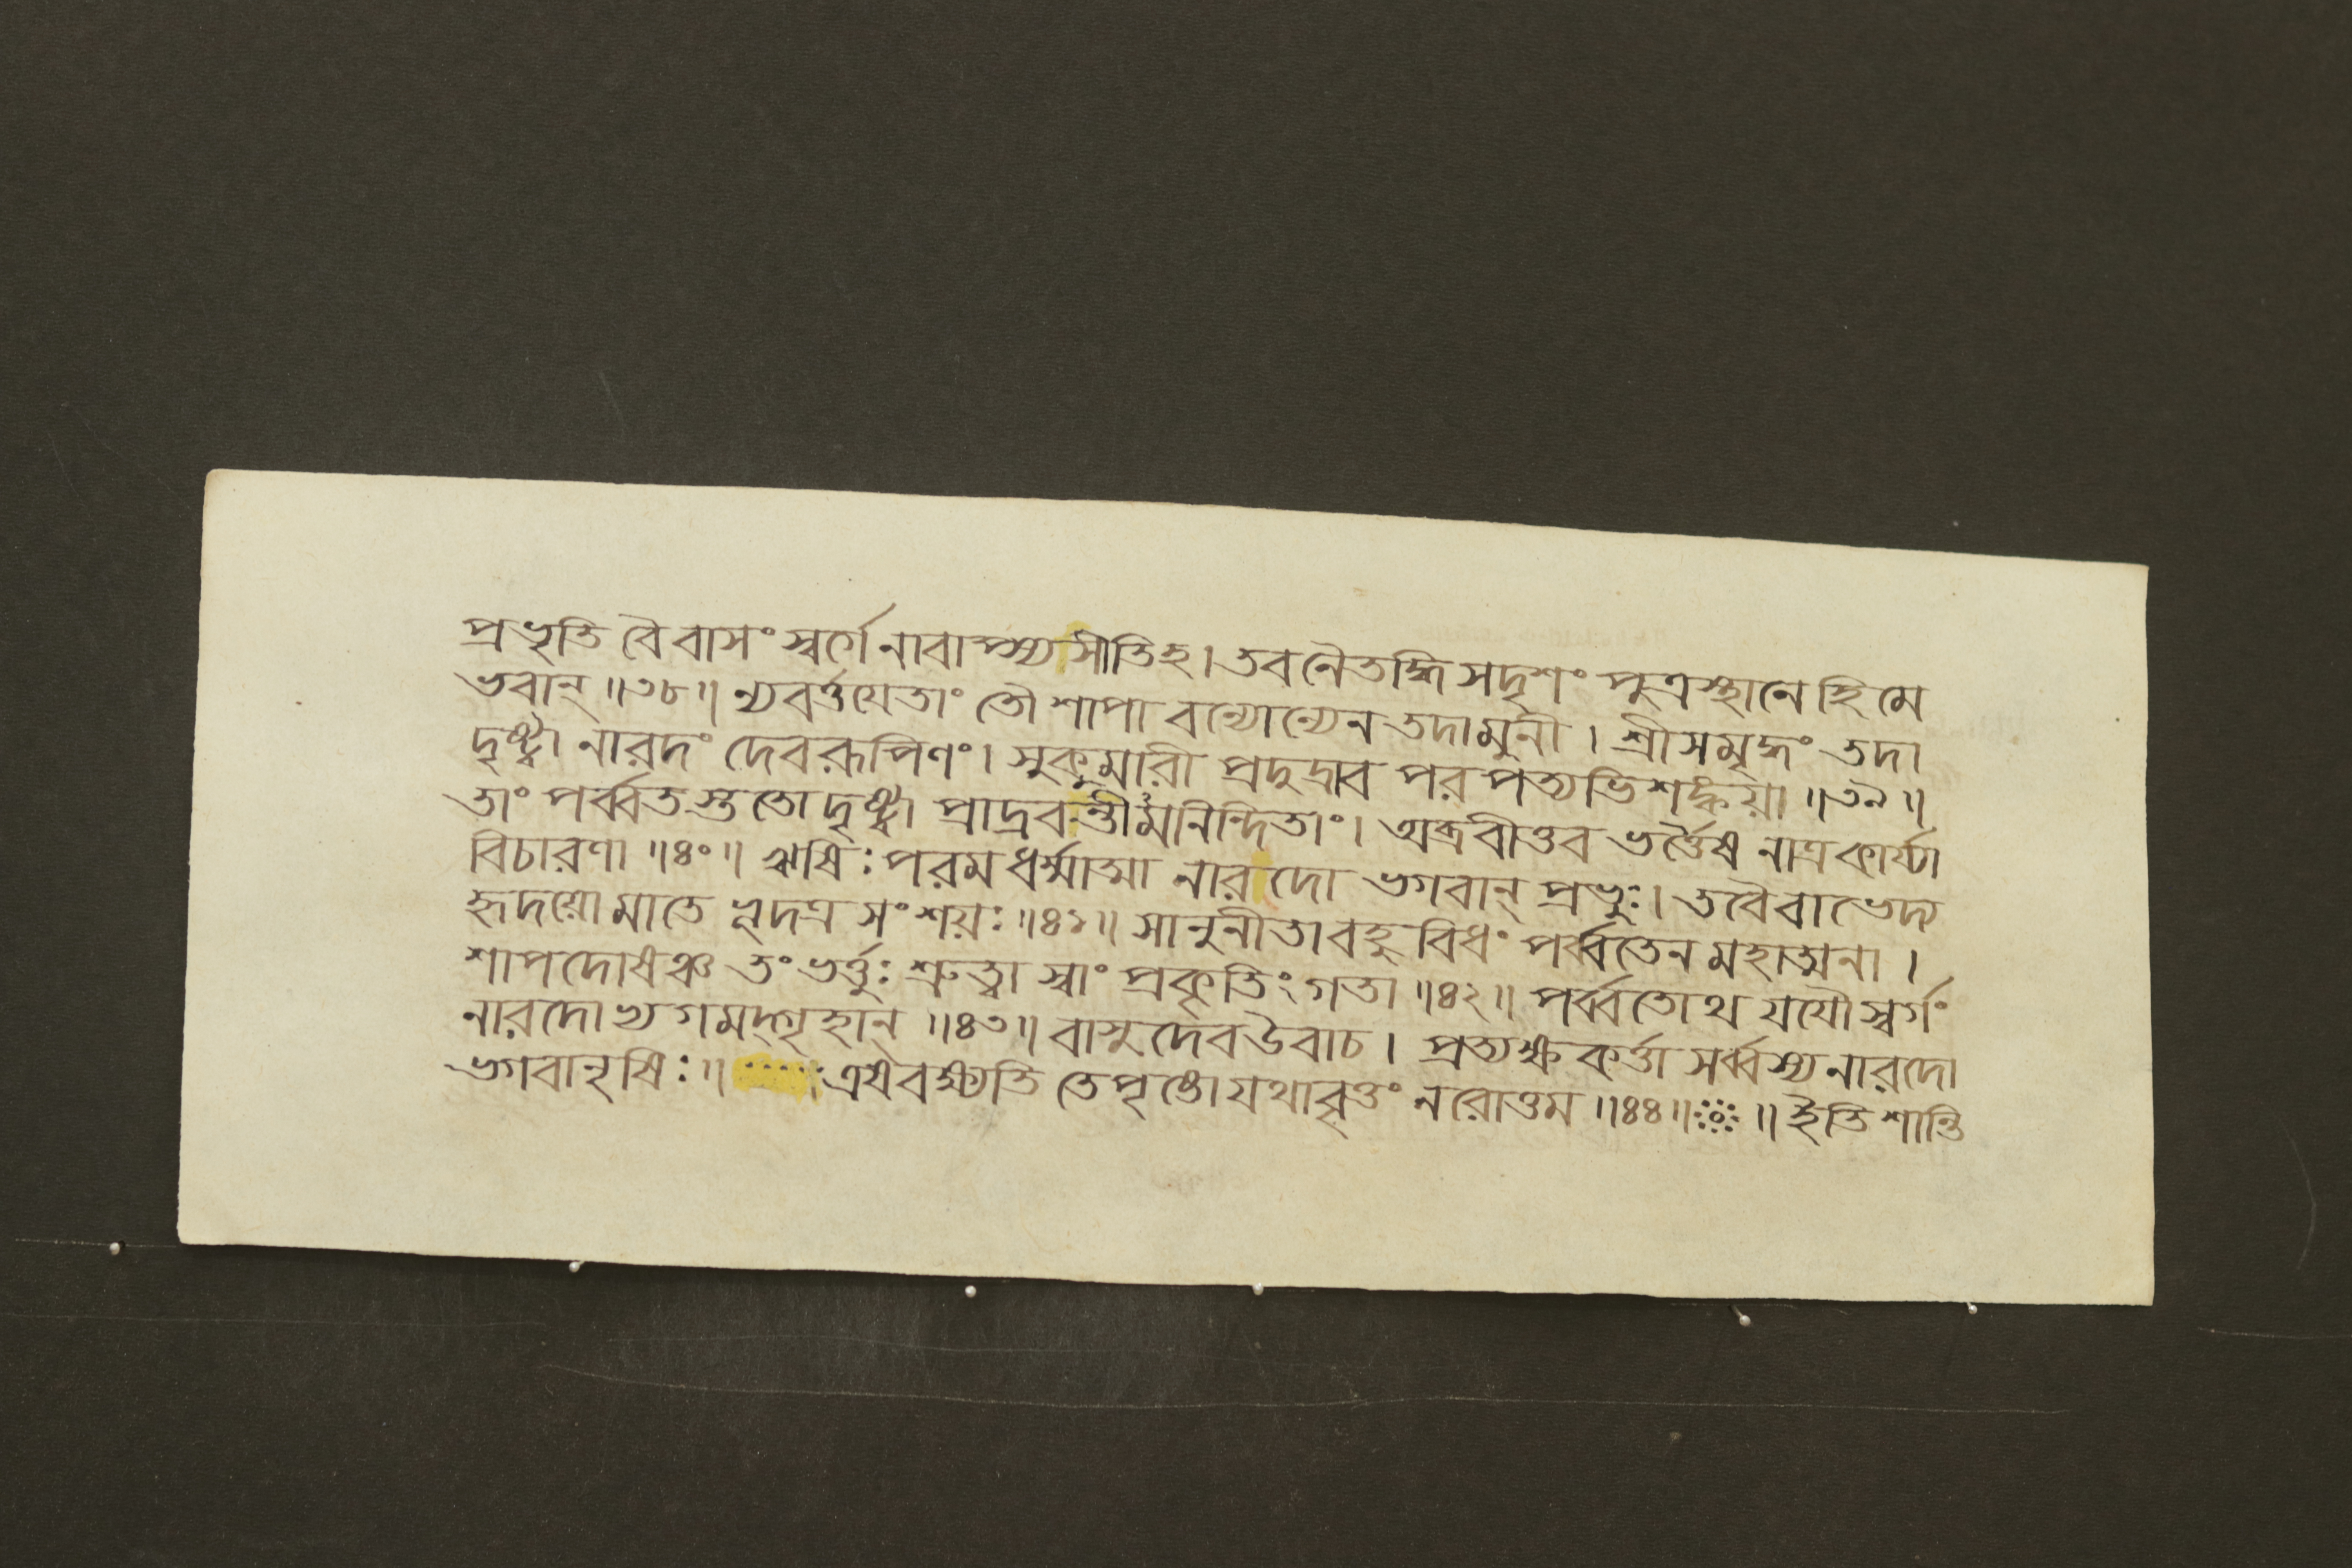 প্রভৃতি বৈ বাসং স্বর্গে নাবাপ্স্য সীতিহ। তব নৈতদ্ধি সদৃশং পুত্রস্থানে হি মে
ভবান্ ॥৩৮॥ ন্যবর্ত্তযেতাং তৌ শাপা বন্যোন্যেন তদা মুনী । শ্রীসমৃদ্ধং তদা
দৃষ্ট্বা নারদং দেবরূপিণং। সুকুমারী প্রদুদ্রাব পর পত্যভিশঙ্কয়া ॥৩৯॥
তাং পর্ব্বতস্ততো দৃষ্ট্বা প্রাদ্রবন্তীমনিন্দিতাং। অব্রবীত্তব ভর্ত্তৈষ নাত্র কার্য্যা
বিচারণা ॥৪০॥ ঋষিঃ পরম ধর্ম্মাত্মা নারদো ভগবান্ প্রভুঃ। তবৈবাভেদ্য
হৃদয়ো মাতে ভূদত্র সংশয়ঃ ॥৪১॥ সানুনীতা বহুবিধং পর্ব্বতেন মহাত্মনা ।
শাপদোষঞ্চ তং ভর্ত্তুঃ শ্রুত্বা স্বাং প্রকৃতিং গতা ॥৪২॥ পর্ব্বতোথ যযৌ স্বর্গং
নারদোভ্যগমদ্গৃহান্ ॥৪৩॥ বাসুদেব উবাচ । প্রত্যক্ষ কর্ত্তা সর্ব্বস্য নারদো
ভগবানৃষিঃ ॥ এষ বক্ষ্যতি তে পৃষ্টো যথাবৃত্তং নরোত্তম ॥৪৪॥ ॥ ইতি শান্তি